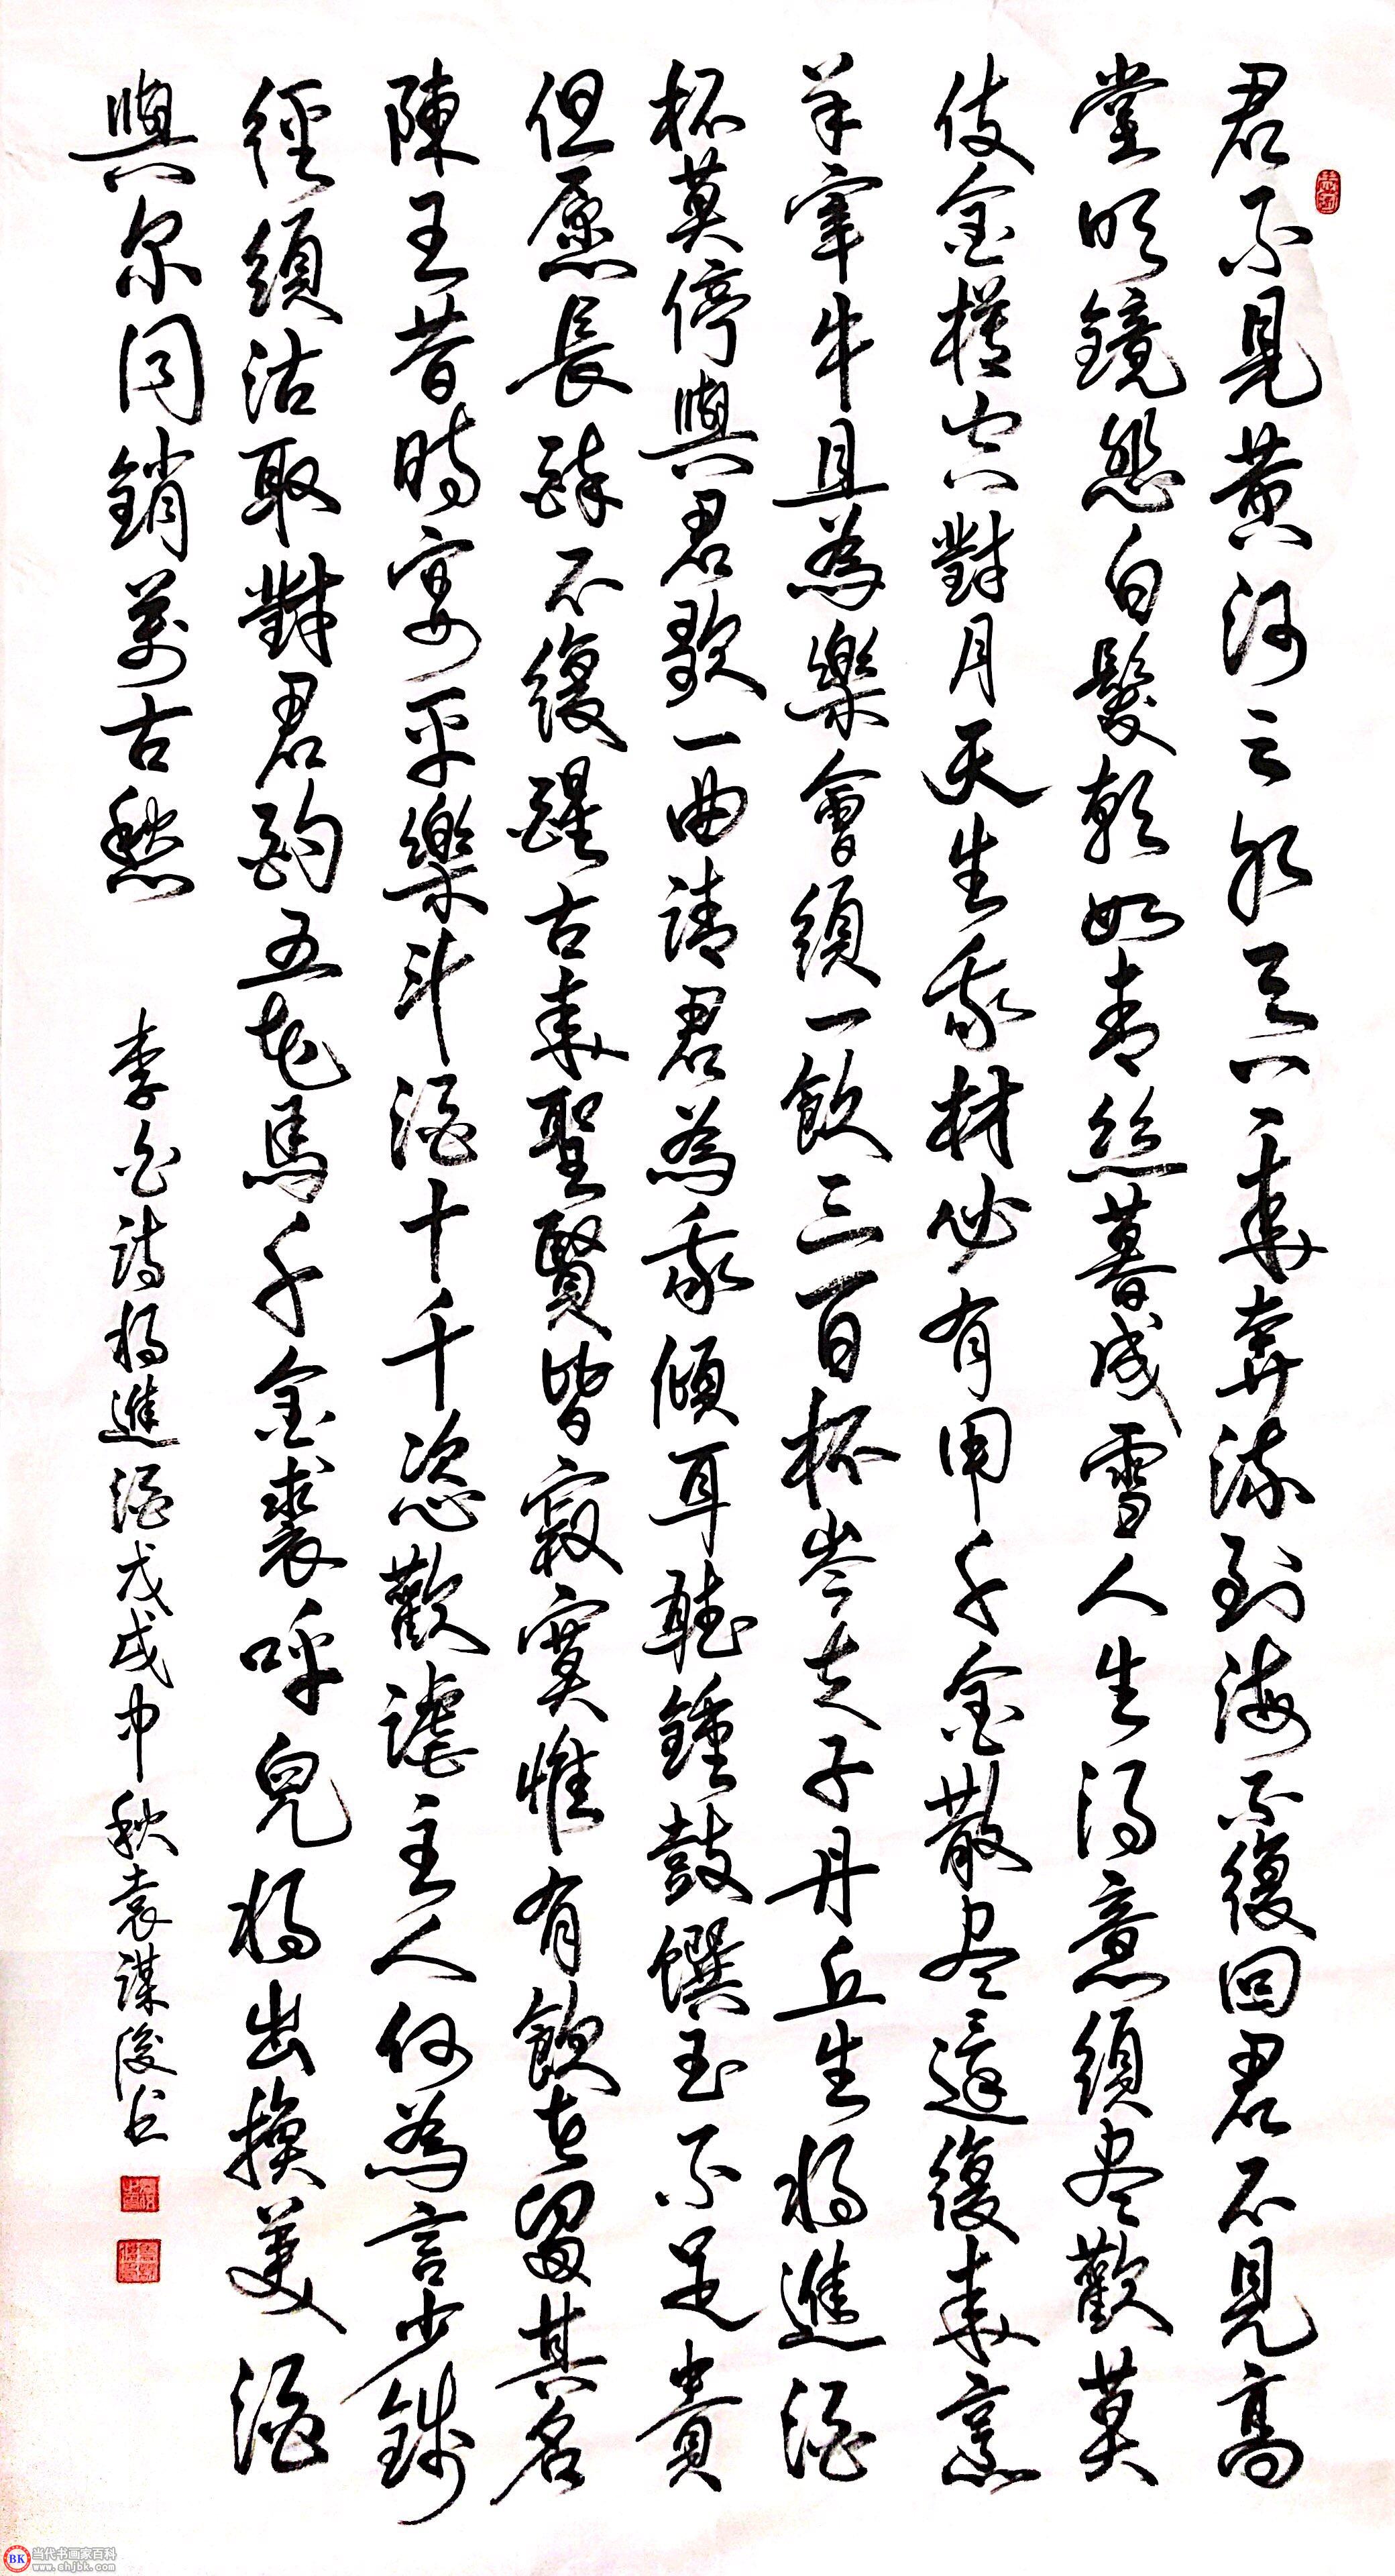 君不見黄河之水天上來奔流到海不復回君不見高
堂明鏡悲白髮朝如青絲暮成雪人生得意須尽歡莫
使金樽空對月天生我材必有用千金散尽還復來烹
羊宰牛且為樂會須一飲三百杯岑夫子丹丘生將進酒
杯莫停與君歌一曲請君為我傾耳聽鍾鼓饌玉不足貴
但愿長醉不復醒古來聖賢皆寂寞惟有飲者留其名
陳王昔時宴平樂斗酒十千恣歡謔主人何為言少錢
徑須沽取對君酌五花馬千金裘呼兒將出換美酒
與尔同銷萬古愁 李白詩將進酒戊戌中秋袁謀俊书
BK 当代书画家百科
www.shjbk.com